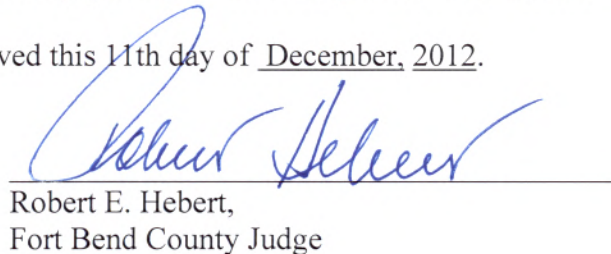 ved this 11th day of December, 2012.
Robert Hebert
Robert E. Hebert,
Fort Bend County Judge